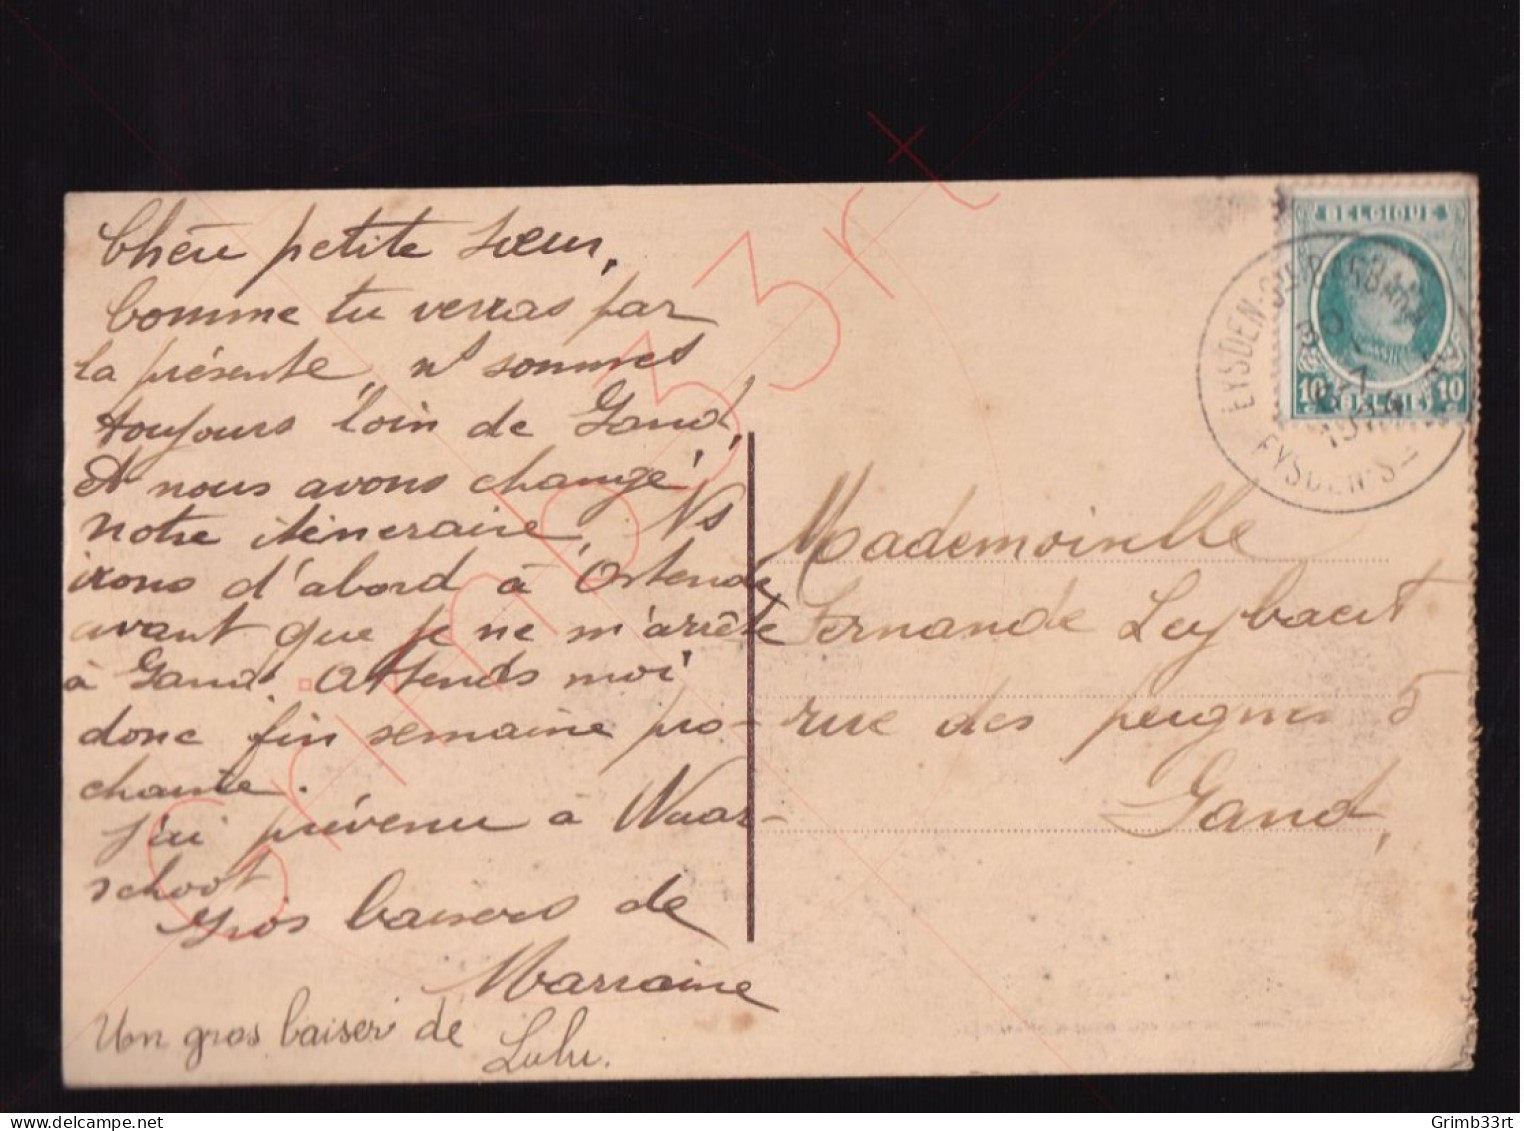 Chère petite sœur,
Comme tu verras par
la présente, ns sommes
toujours loin de Gand,
et nous avons changé
notre itineraire. Ns
irons d'abord à Ostende
avant que je ne m'arrête
à Gand. Attends moi
donc fin semaine pro-
chaine.
J'ai prévenu à Waar-
schoot
Gros baisers de
Marraine
Un gros baiser de
Lulu.
BELGIQUE
10 10
BELGIË
EYSDEN
EYSDEN-S
Mademoiselle
Fernande Leybaert
rue des peignes 5
Gand,
Grimb33rt
delcampe.net
Grimb33rt